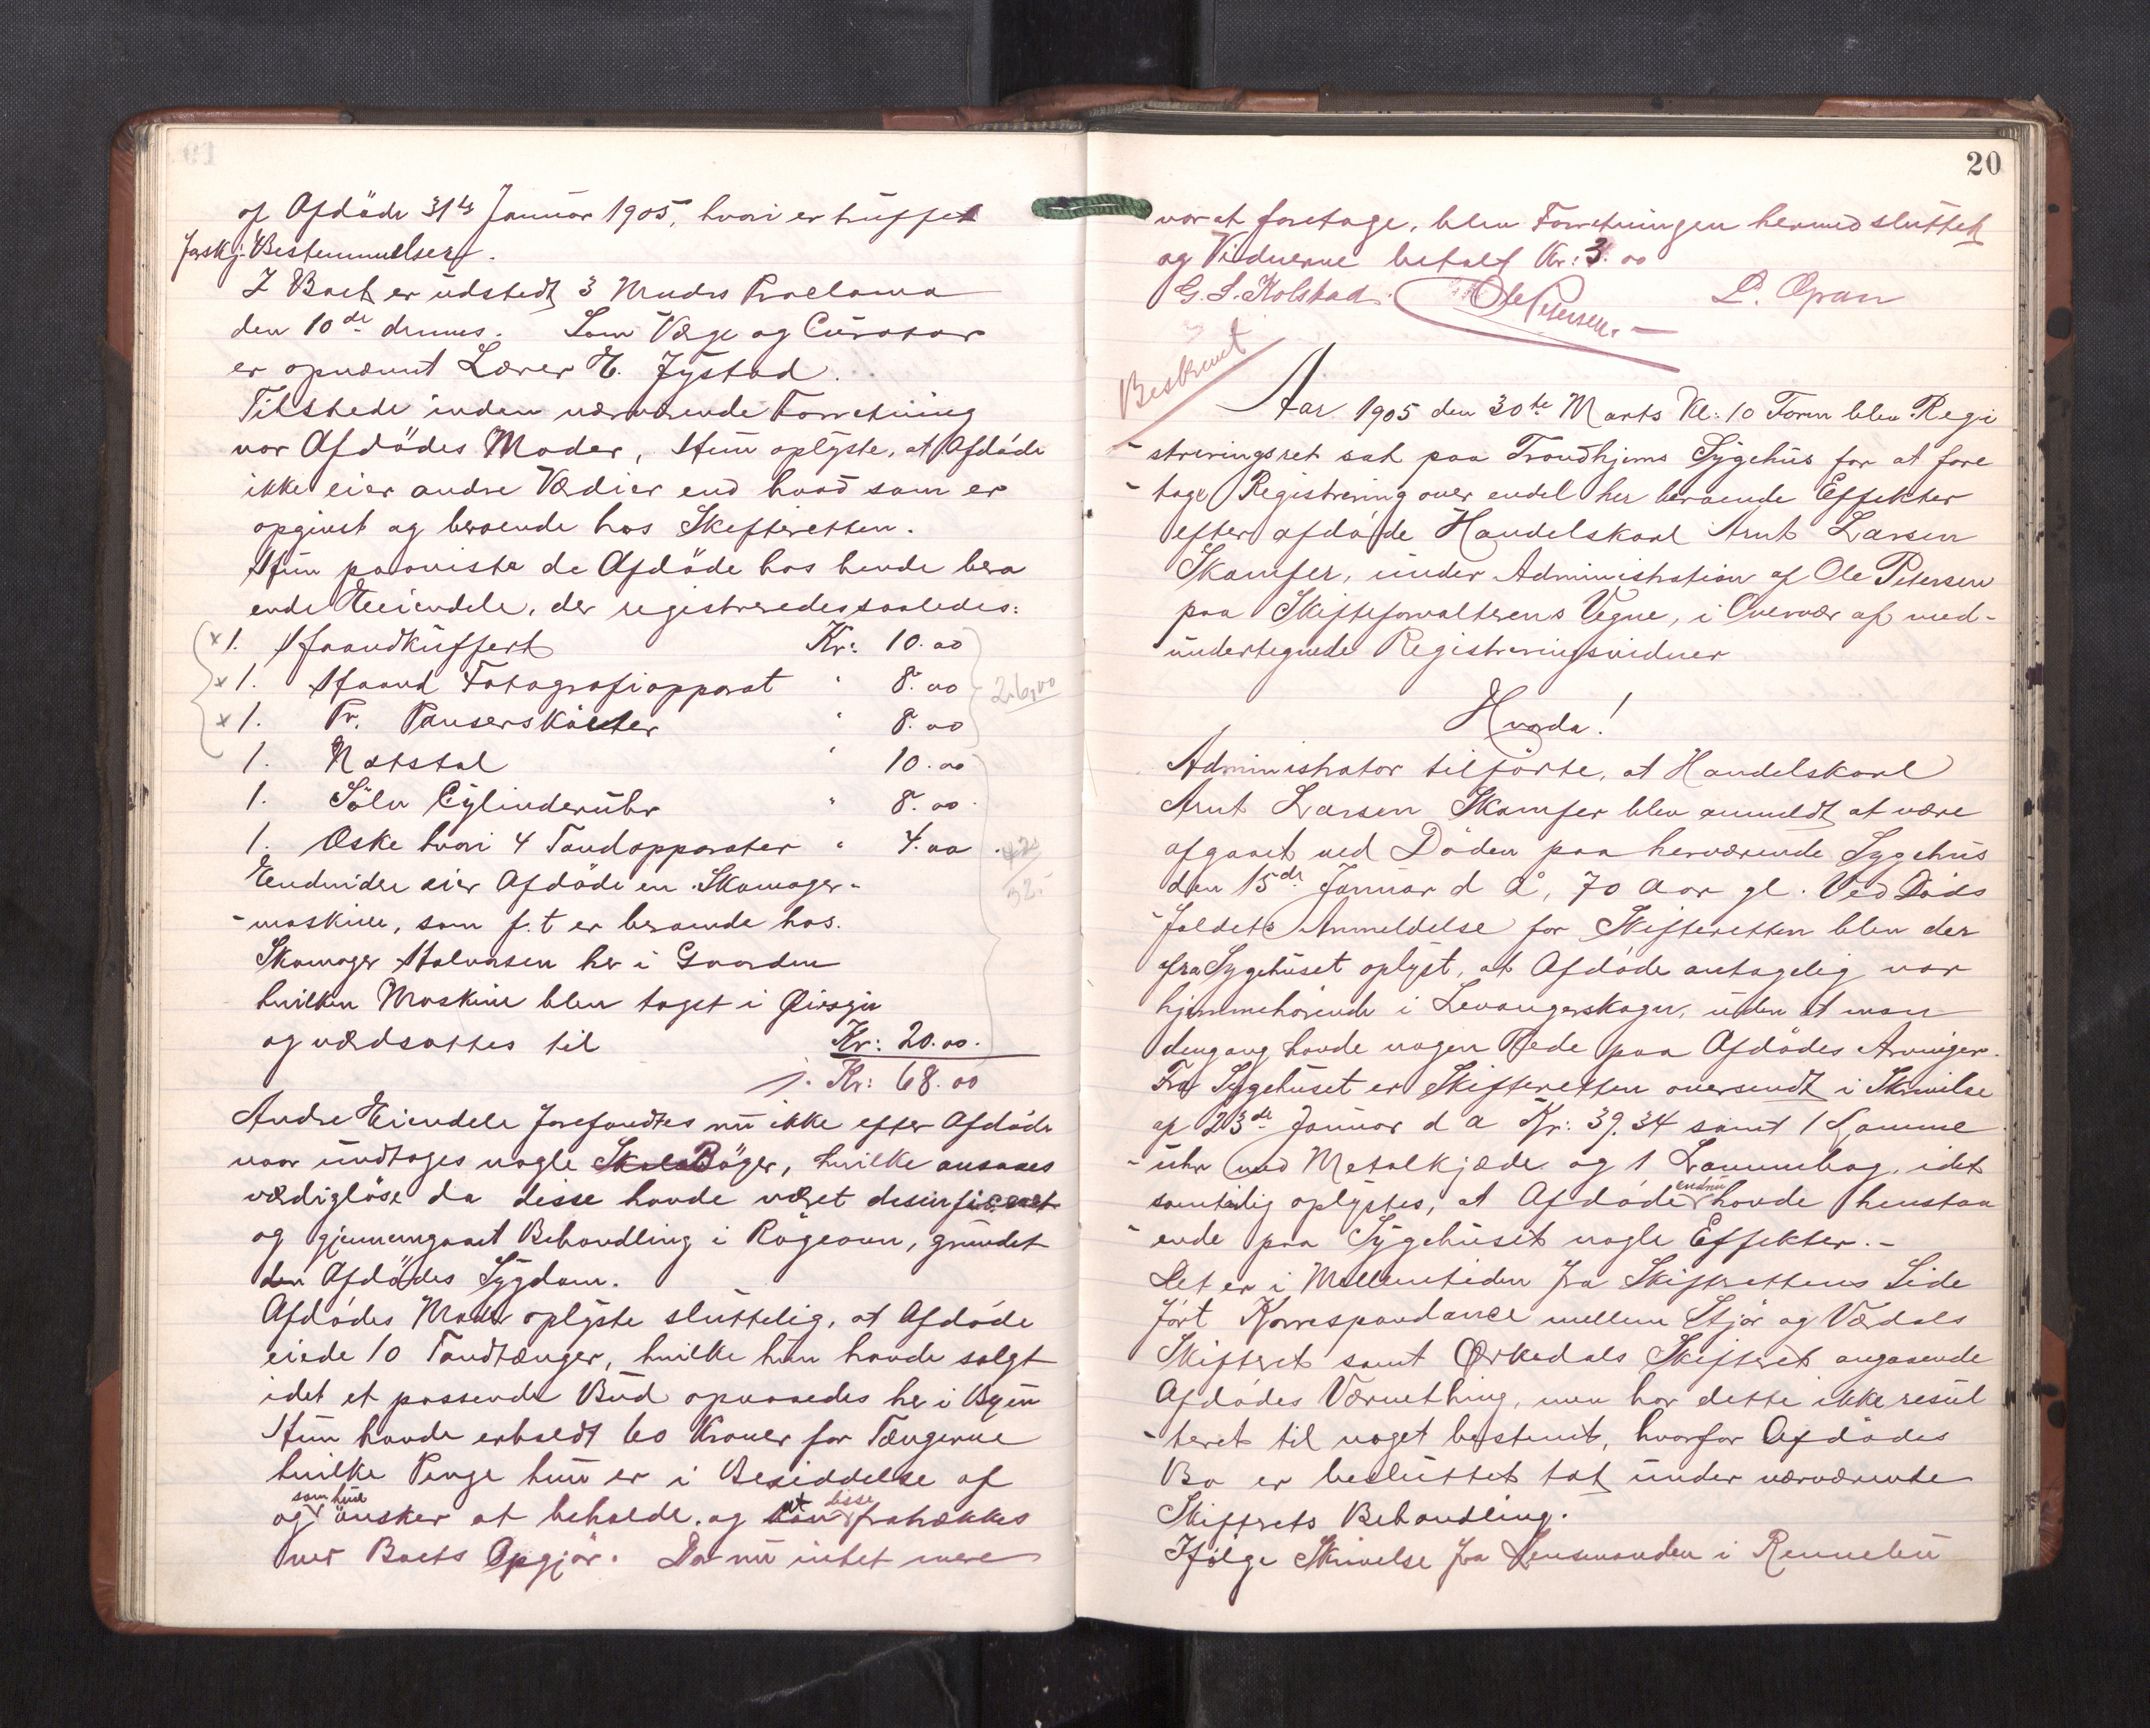 af Afdöde 31te Januar 1905, hvori er truffet
forskj. Bestemmelser.
I Boet er udstedt 3 Mndrs Proclama
den 10de dennes. Som Værge og Curator
er opnævnt Lærer H. Jystad.
Tilstede inden nærværende Forretning
var Afdödes Moder, Hun oplyste, at Afdöde
ikke eier andre Vædier end hvad som er
opgivet og beroende hos Skifteretten.
Hun paaviste de Afdöde hos hende bero
ende Eiendele, der registreredes saaledes:
x 1. Haandkuffert Kr: 10.00
x 1. Haand Fotografiapparat " 8.00
26,00
x 1. Pr. Pansersköiter " 8.00
1. Natstol " 10.00
1. Sölv Cylinderuhr " 8.00
1. Æske hvori 4 Tandapparater " 4.00
Endvidere eier Afdöde en Skomager-
-maskine, som f.t er beroende hos.
Skomager Halvorsen her i Gaarden
hvilken Maskine blev taget i Øiesyn
og værdsattes til Kr: 20.00.
Kr: 68.00
Andre Eiendele forefandtes nu ikke efter Afdöde
naar undtages nogle Böger, hvilke ansaaes
værdiglöse da disse havde været desinficeret
og gjennemgaaet Behandling i Rögeovn, grundet
Afdödes Sygdom.
Afdödes Moder oplyste sluttelig, at Afdöde
eiede 10 Tandtænger, hvilke hun havde solgt
idet et passende Bud opnaaedes her i Byen
Hun havde erholdt 60 Kroner for Tængerne
hvilke Penge hun er i Besiddelse af
og som hun önsker at beholde. og at disse fratrækkes
ved Boets Opgjör. Da nu intet mere
20
var at foretage, blev Forretningen hermed sluttet
og Vidnerne betalt Kr: 3.00
G. S. Kolstad. Ole Petersen. L. Opran
Beskrevet
Aar 1905 den 30te Marts Kl: 10 Form blev Regi
-streringsret sat paa Trondhjems Sygehus for at fore
-tage Registrering over endel her beroende Effekter
efter afdöde Handelskarl Arnt Larsen
Skamfer, under Administration af Ole Petersen
paa Skifteforvalterens Vegne, i Overvær af med-
undertegnede Registreringsvidner
Hvorda!
Administrator tilförte, at Handelskarl
Arnt Larsen Skamfer blev anmeldt at være
afgaaet ved Döden paa herværende Sygehus
den 15de Januar d å, 70 Aar gl. Ved Döds
-faldets Anmeldelse for Skifteretten blev der
fra Sygehuset oplyst, at Afdöde antagelig var
hjemmehörende i Levangerskogn, uden at man
dengang havde nogen Rede paa Afdödes Arvinger.
Fra Sygehuset er Skifteretten oversendt i Skrivelse
af 23de Januar d a Kr: 39.34 samt 1 Lomme
-uhr med Metalkjæde og 1 Lommebog, idet
samtidig oplystes, at Afdöde endnu havde henstaa
-ende paa Sygehuset nogle Effekter.-
Det er i Mellemtiden fra Skifterettens Side
fört Korrespondance mellem Stjör og Værdals
Skifteret samt Ørkedals Skifteret angaaende
Afdödes Værnething, men har dette ikke resul
-teret til noget bestemt, hvorfor Afdödes
Bo er besluttet tat under nærværende
Skifterets Behandling.
Ifölge Skrivelse fra Lensmanden i Rennebu